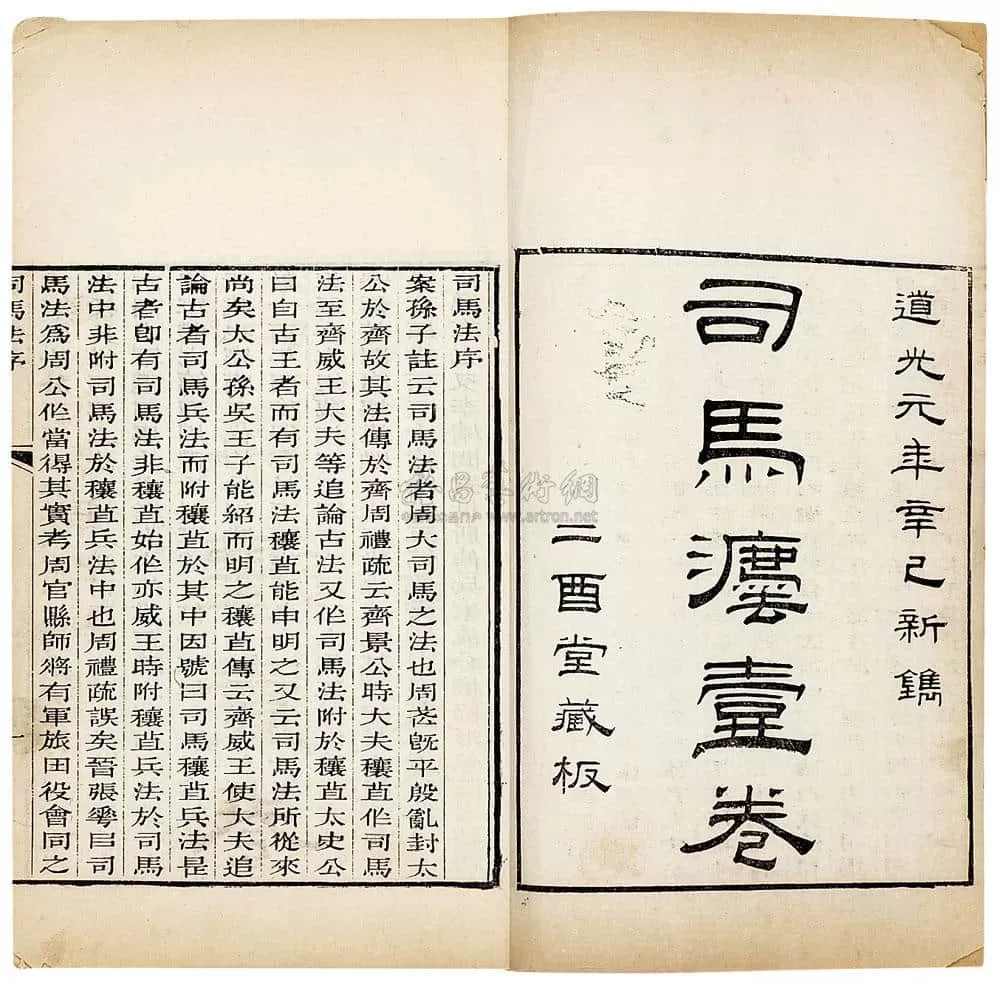 道光元年辛巳新鐫
司馬灋壹卷
二酉堂藏板
司馬法序
案孫子註云司馬法者周大司馬之法也周茖旣平殷亂封太
公於齊故其法傳於齊周禮疏云齊景公時大夫穰苴作司馬
法至齊威王大夫等追論古法又作司馬法附於穰苴太史公
曰自古王者而有司馬法穰苴能申明之又云司馬法所從來
尚矣太公孫吳王子能紹而明之穰苴傳云齊威王使大夫追
論古者司馬兵法而附穰苴於其中因號曰司馬穰苴兵法是
古者卽有司馬法非穰苴始作亦威王時附穰苴兵法於司馬
法中非附司馬法於穰苴兵法中也周禮疏誤矣晉張華㠯司
馬法爲周公作當得其實考周官縣師將有軍旅田役會同之
司馬法序
一
www.artron.net